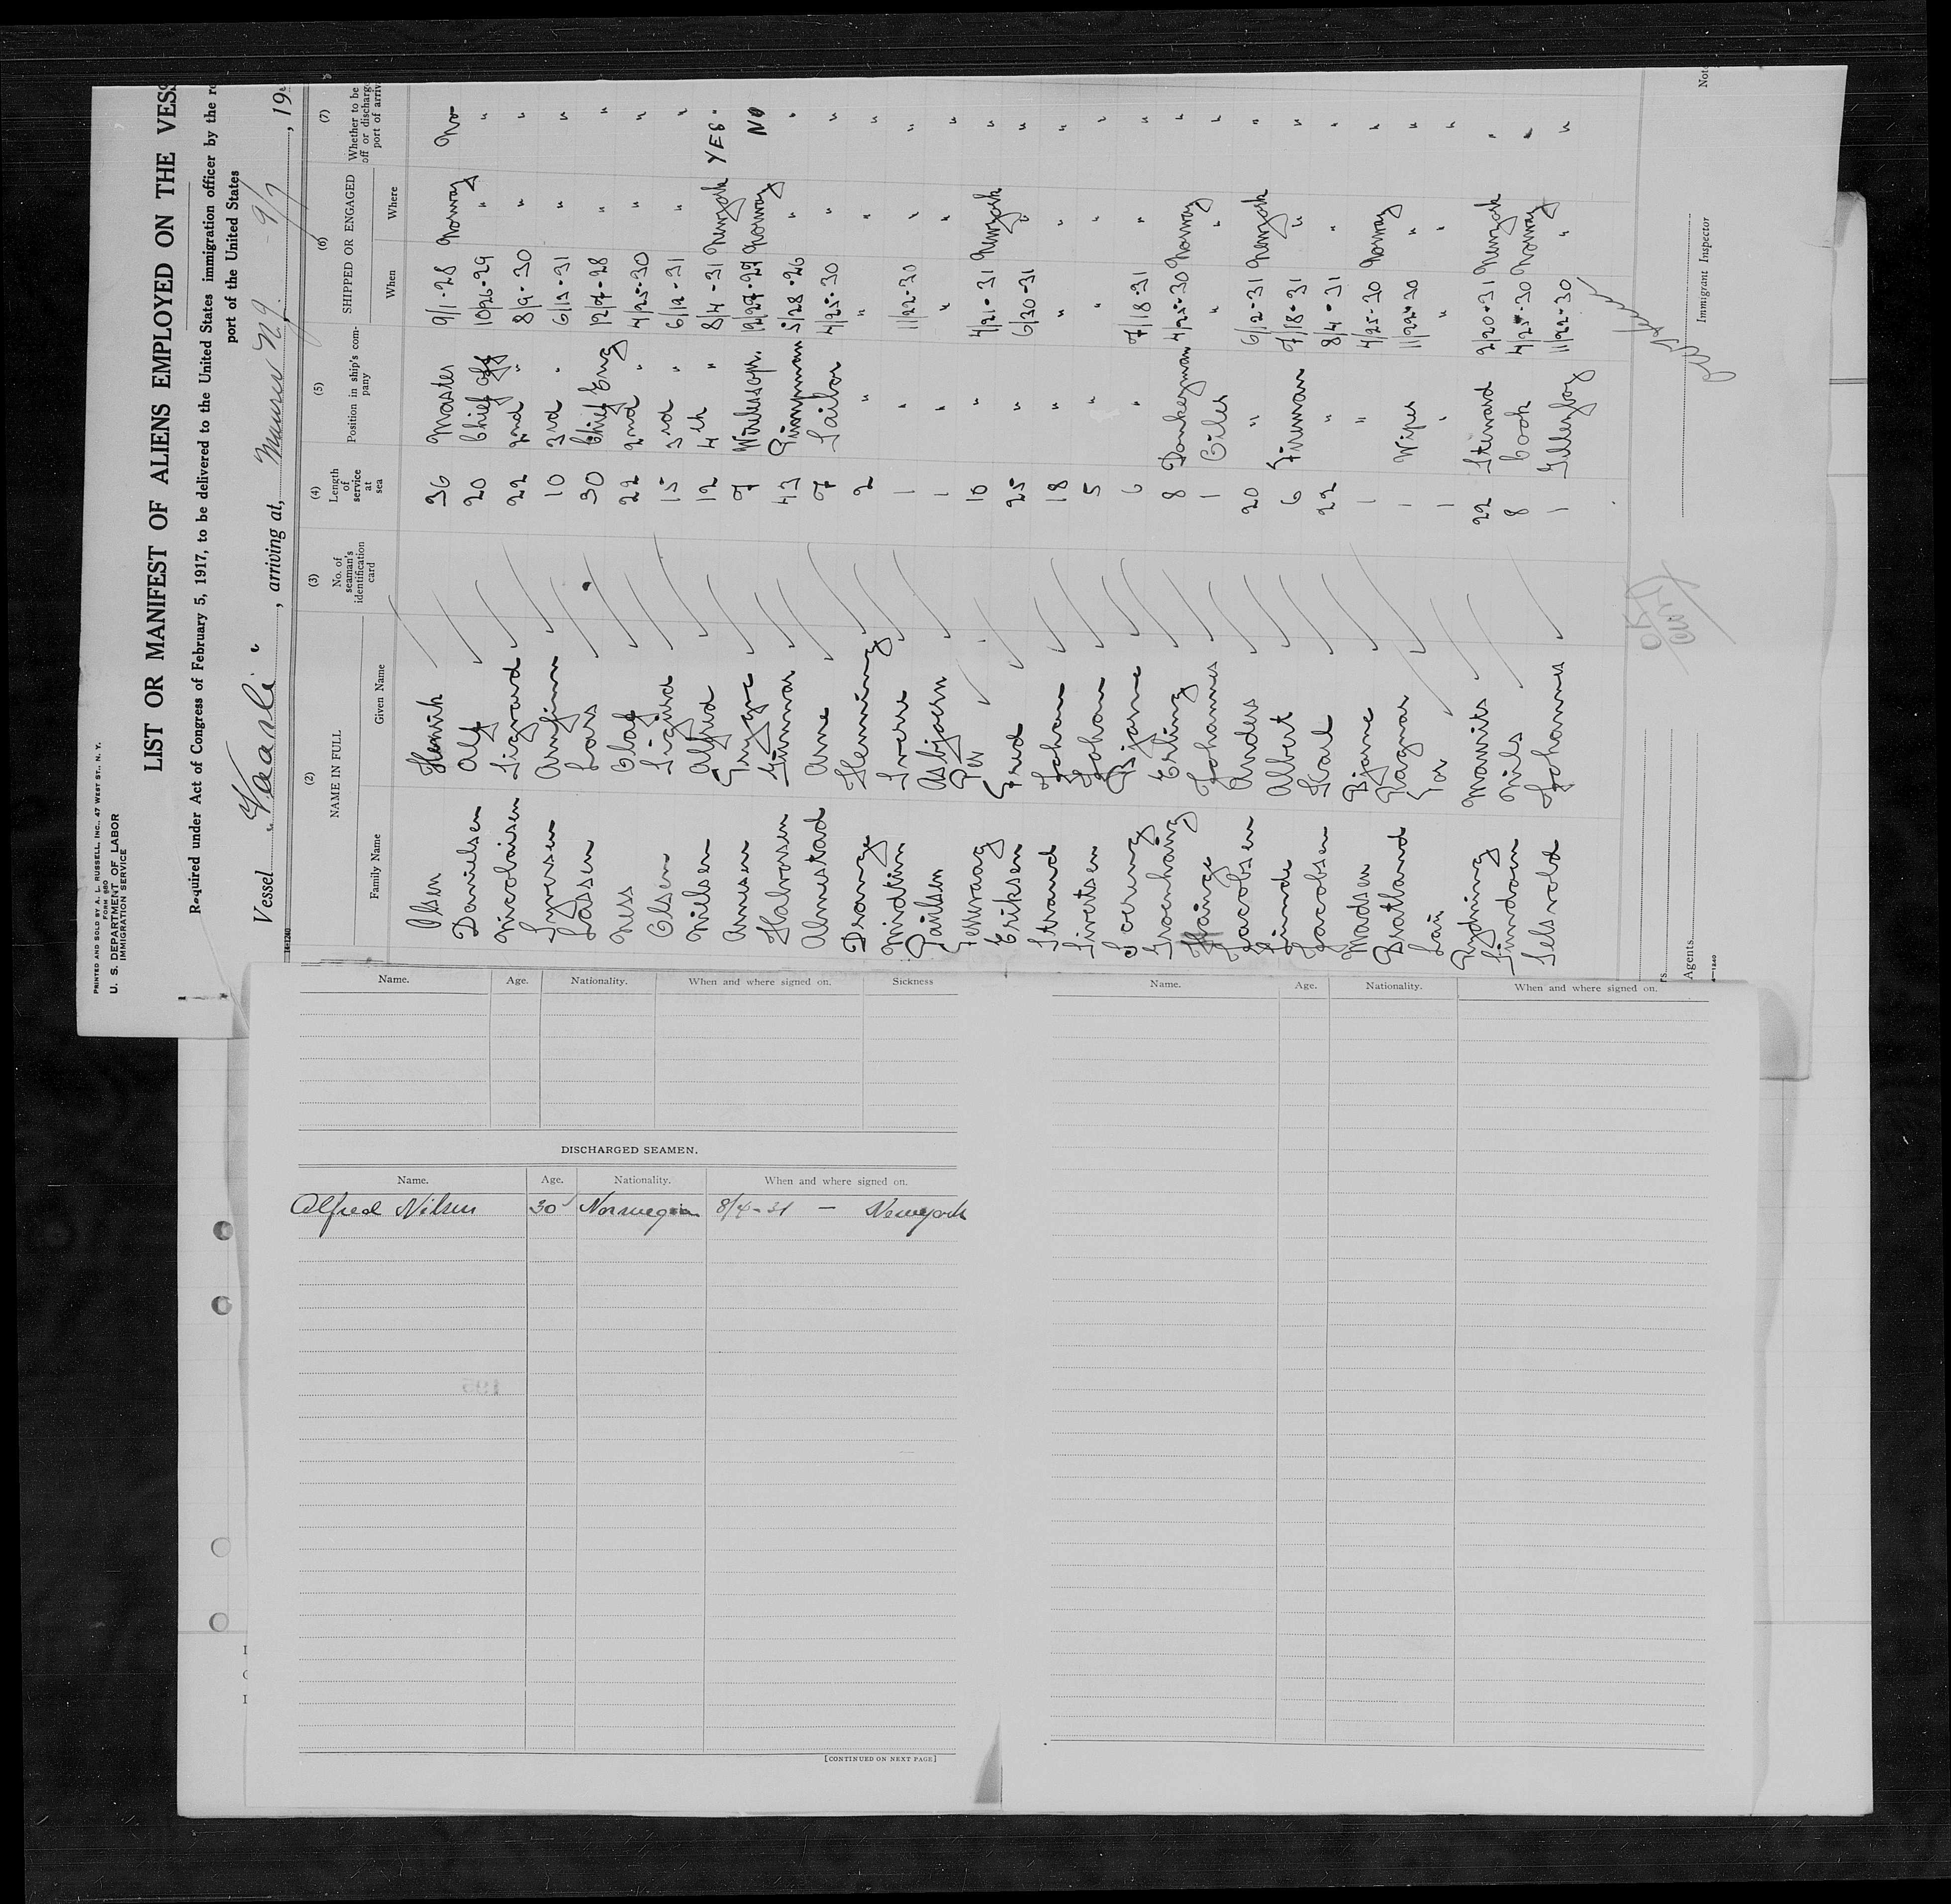 PRINTED AND SOLD BY A. L. RUSSELL, INC., 47 WEST ST., N. Y.
FORM 680
U. S. DEPARTMENT OF LABOR
IMMIGRATION SERVICE
LIST OR MANIFEST OF ALIENS EMPLOYED ON THE VESS
Required under Act of Congress of February 5, 1917, to be delivered to the United States immigration officer by the re
port of the United States
Vessel "Vaarli", arriving at, 9/7, 19
14-1240
(2) (3) (4) (5) (6) (7)
NAME IN FULL No. of seaman's identification card Length of service at sea Position in ship's company SHIPPED OR ENGAGED Whether to be off or discharg port of arriv
Family Name Given Name When Where
Olsen Henrik 36 Master 9/1-28 Norway No
Danielsen Alf 20 Chief Off 10/26-29 " "
Nicolaisen Sigvard 22 2nd " 8/9-30 " "
Syversen Arnfinn 10 3rd " 6/13-31 " "
Lassen Lars 30 Chief Eng 12/7-28 " "
Ness Olaf 22 2nd " 4/25-30 " "
Olsen Sigurd 15 3rd " 6/12-31 " "
Nilsen Alfred 12 4th " 8/4-31 Newyork YES "
Arnesen Trygve 7 Wirelessopr. 12/27-27 Norway NO
Halvorsen Gunnar 43 Pumpman 5/28-26 " "
Almestad Arne 7 Sailor 4/25-30 " "
Drange Henning 2 " " " "
Mirdtun Sverre 1 " 11/22-30 " "
Paulsen Asbjoern 1 " " " "
Tellevaag Per 10 " 4/21-31 Newyork "
Eriksen Fred 25 " 6/30-31 " "
Strand Johan 18 " " " "
Sivertsen Johan 5 " " " "
Soereng Bjarne 6 " 7/18-31 " "
Groenhaug Erling 8 Donkeyman 4/25-30 Norway "
Hauge Johannes 1 Oiler " " "
Jacobsen Anders 20 " 6/2-31 Newyork "
Linde Albert 6 Fireman 7/18-31 " "
Jacobsen Karl 22 " 8/4-31 " "
Madsen Bjarne 1 " 4/25-30 Norway "
Bratland Ragnar 1 Wiper 11/22-30 " "
Lai Tor 1 " " " "
Rydning Mauritz 22 Steward 2/20-31 Newyork "
Sundvon Nils 8 Cook 4/25-30 Norway "
Selsvold Johannes 1 Galleyboy 11/22-30 " "
Immigrant Inspector
Not
rs
Agents
4—1240
Name. Age. Nationality. When and where signed on. Sickness
DISCHARGED SEAMEN.
Name. Age. Nationality. When and where signed on.
Alfred Nilsen 30 Norwegian 8/4-31 — Newyork
[CONTINUED ON NEXT PAGE]
Name. Age. Nationality. When and where signed on.